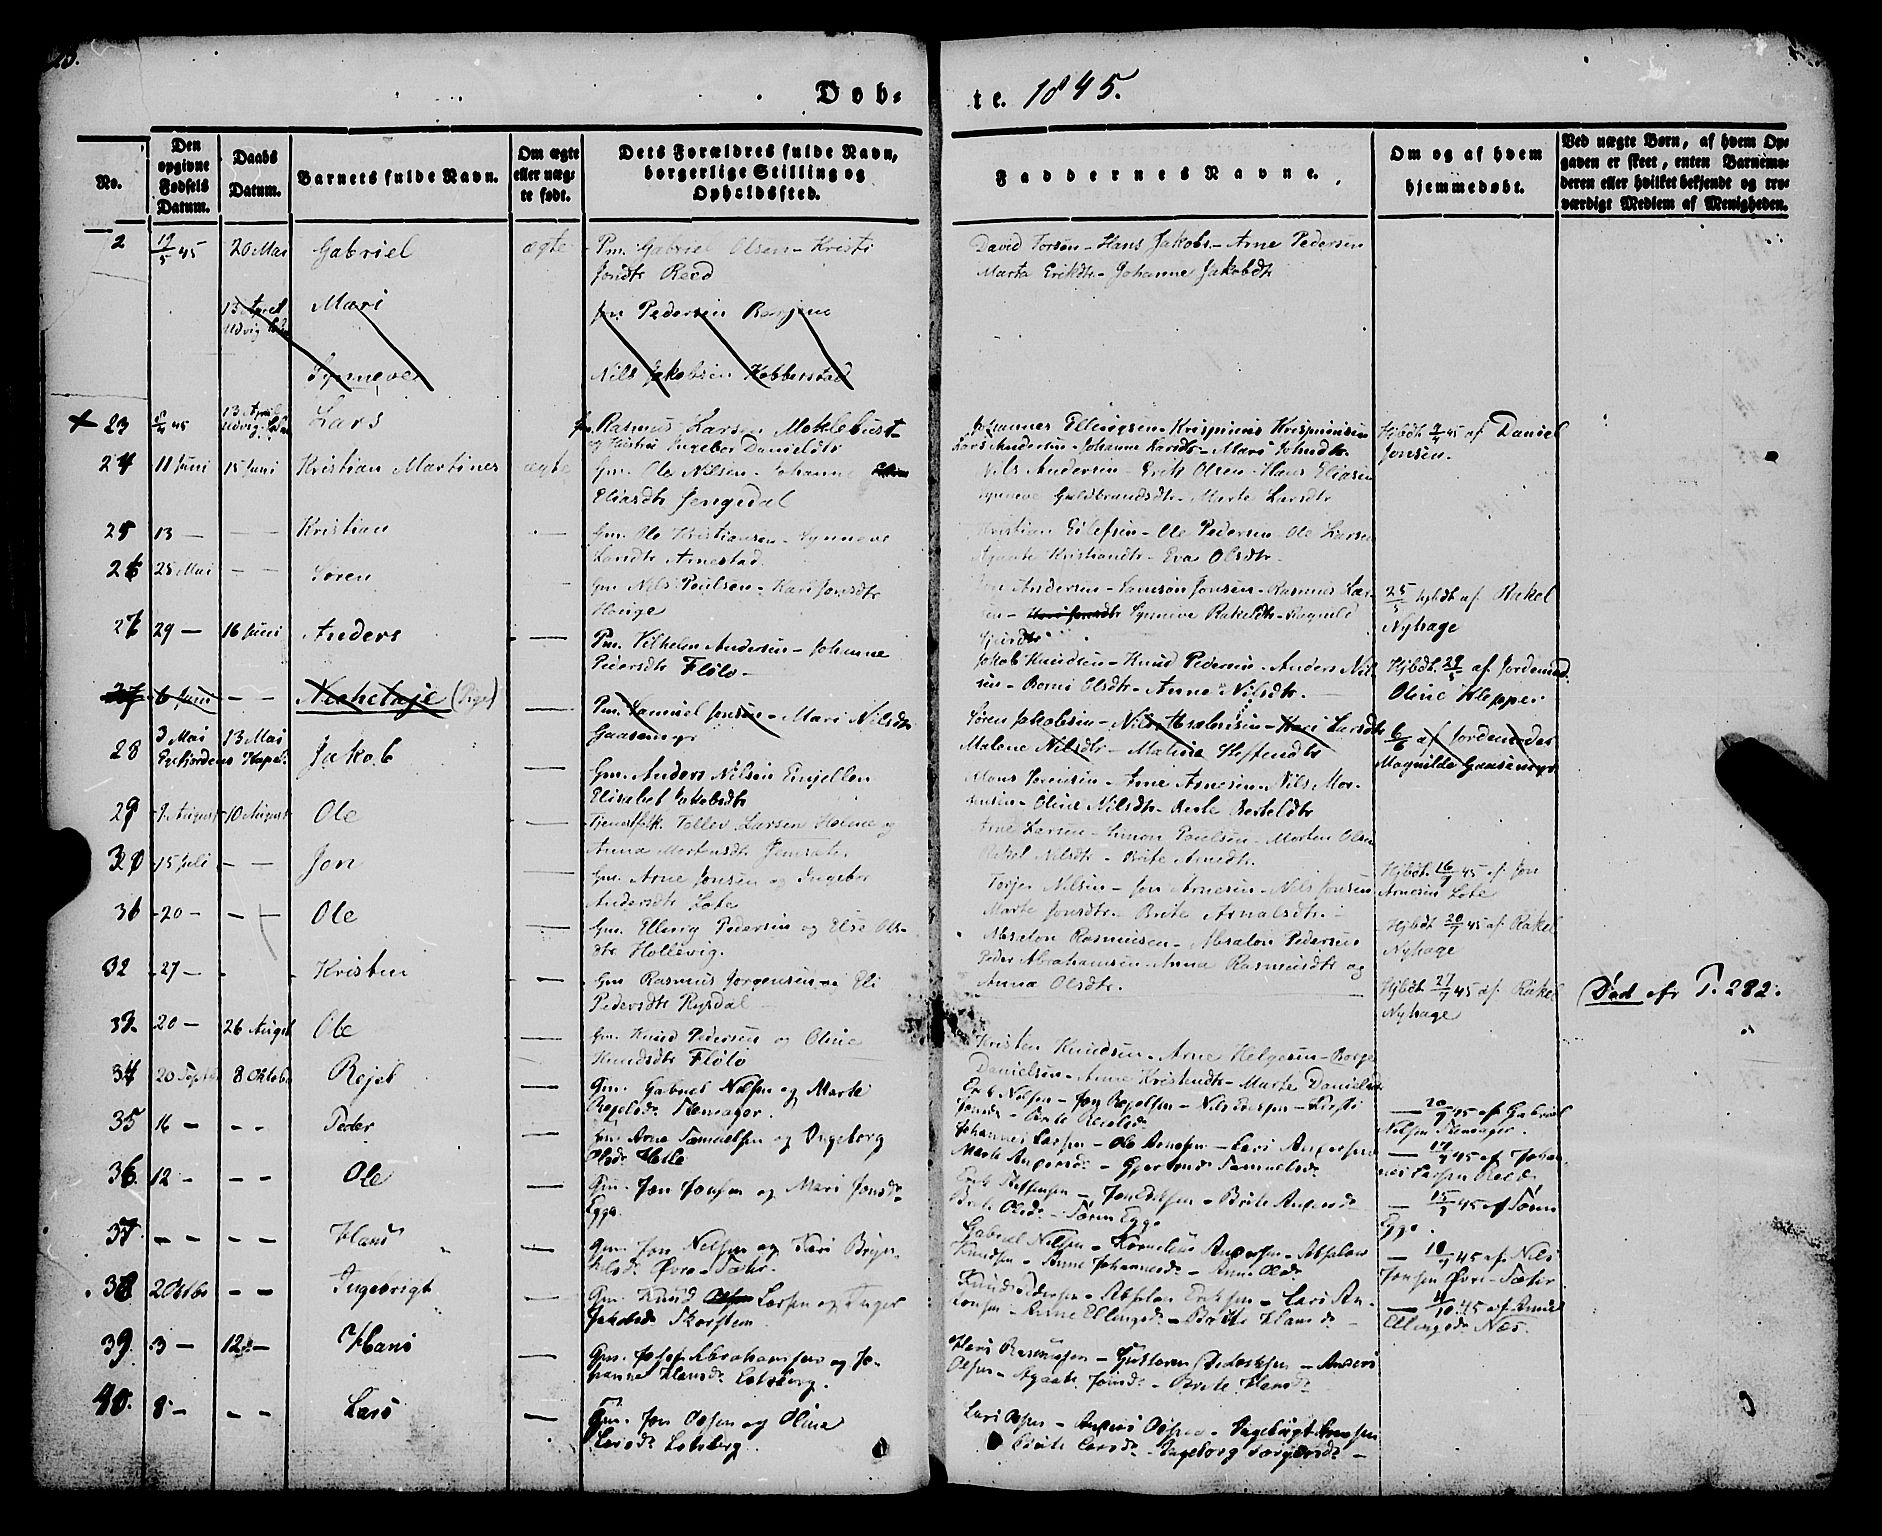 Døb- te. 1845.
No.
Den opgivne Fødsels Datum.
Daabs Datum.
Barnets fulde Navn.
Om ægte eller uægte født.
Dets Forældres fulde Navn, borgerlige Stilling og Opholdssted.
Faddernes Navne.
Om og af hvem hjemmedøbt.
Ved uægte Børn, af hvem Opgaven er skeet, enten Barnemoderen eller hvilket bekjendt og troværdigt Medlem af Menigheden.
2 19/5 45 20 Mai Gabriel ægte Pm. Gabriel Olsen - Kristi
Jonsdtr Reed
David Torsen - Hans Jakobs. - Arne Pedersen
Marta Eriksdtr - Johanne Jakobdtr
13 April Mari Jon Pedersen
Synneve Nils Jakobsen Kobberstad
23 13 April Lars Rasmus Larsen Moklebust
og Hustru Ingebor Danieldtr
Johannes Ellingsen - Krispinus Krispinusen
Lars Andersen - Johanne Larsdtr - Mari Johndtr
Hjbdt 45 af Daniel
Jonsen.
24 11 Juni 15 Juni Kristian Martines ægte Gm. Ole Nilsen - Johanne
Eliasdtr Jengedal
Nils Andersen - Erik Olsen - Hans Eliasen
Synneve Guldbrandsdtr - Marte Larsdtr
25 13 — — Kristian — Gm. Ole Kristiansen - Synneve
Larsdtr Arnestad
Kristian - Ole Pedersen Ole Larsen
Agaate Kristiandtr - Eva Olsdtr
26 25 Mai — — Søren Gm Nils Poulsen - Kari Jonsdtr
Hauge
Andersen - Samson Jonsen - Rasmus Lar-
sen - Synneve Rakeldtr - Ragnild
25/5 hjbdt af Rakel
Nyhage
27 29 — 16 Juni Anders — Pm. Vilhelm Andersen - Johanne
Pedersdtr Flølo -
Jakob Knudsen - Knud Pedersen - Anders Nil-
sen - Berni Olsdtr - Anne Nilsdtr. -
Hjbdt. 29/5 af Jordemod.
Oline Kleppe
27 6 Juni — — (Pige) — Pm. Samuel Jensen - Mari Nilsdtr
Gaasemyr
Søren Jakobsen - Nils Absalonsen - Kari Larsdtr
Malene Nilsdtr - Malina Steffendtr
6/6 af Jordemoder
Magnilde Gaasemyr
28 3 Mai 13 Mai Jakob — Gm. Anders Nilsen
Elisabet Jakobsdtr
Mons Sørensen - Arne Arnesen - Nils Mor-
tensen - Oline Nilsdtr - Berte Berteldtr
29 7 August 10 August Ole — Tjenestfolk. Tollev Larsen Holme og
Anna Mortensdtr
Arne Larsen - Simon Poulsen - Morten Olsen
Rakel Nilsdtr - Brite Arnedtr.
30 15 Juli — — Jon — Gm. Arne Jonsen og Ingebor
Andersdtr Lote
Torjer Nilsen - Jon Arnesen - Nils Jonsen
Marte Jonsdtr. - Brite Arnalsdtr. -
Hjbdt. 16/7 45 af Jon
Arnesen Lote
31 20 — — Ole — Gm. Elling Pedersen og Else Ols-
dtr Hollevig.
Absalon Rasmusen - Absalon Pedersen
Peder Abrahamsen - Anna Rasmusdtr og
Anna Olsdtr.
Hjbdt 20/7 45 af Rakel
Nyhage
32 27 — Kristen — Gm Rasmus Jørgensen Eli
Pedersdtr Rysdal
Hjbdt 27/7 45 af Rakel
Nyhage
Død efr P. 282.
33 20 — 26 August Ole — Gm. Knud Pedersen og Oline
Knudsdtr Flølo
Kristen Knudsen - Arne Helgesen - Børge
Danielsen - Anne Kristendtr - Marte Danielsdtr
34 20 Septb 8 Oktober Rejel — Gm. Gabriel Nilsen og Marte
Rejelsd.
Erik Nilsen - Jon Rejelsen - Nils
— 20/9 45 af Gabriel
Nilsen
35 16 — — — Peder — Gm. Arne Samuelsen og Ingeborg
Olsd. Hetle
Johannes Larsen - Ole Arnesen - Lars Andersen
Marte Andersd. - Gjertrud Samuelsd.
— 17/9 45 af Johan-
nes Larsen
36 12 — — — Ole — Gm. Jon Jonsen og Mari Jonsd.
Egge.
Erik Steffensen - - Brite Andersd.
Brite Olsd. - Søren Egge
— 15/9 45 af Søren
Egge.
37 — — — — Hans — Gm. Jon Nilsen og Kari Bryn-
Øvre-Sæter.
Gabriel Nilsen - Kornelius Andersen - Absalon
Knudsen - Anne Johannesd. - Anne Olsd.
— 18/9 45 af Nils
Jonsen Øvre-Sæter
38 2 Oktbr — — Ingebrigt — Gm. Knud Larsen og Inger
Jakobsd. Skorstem.
Knud Pedersen - Absalon Eriksen - Lars An-
dersen - Anne Ellingsd. - Brite Hansd. —
— 11/10 45 af Anne
Ellingsd. Nes.
39 3 — 12 — Hans — Gm. Josef Abrahamsen og Jo-
hanne Hansd. Lotsberg.
Hans Rasmusen - Gustaven - Anders
Olsen - Agaate Jonsd. - Berte Hansd.
40. 8 — — — Lars — Gm. Jon Olsen og Oline
Larsd. Lotsberg.
Lars Olsen - Anders Olsen - Ingebrigt Arnesen
Brite Larsd. - Ingeborg